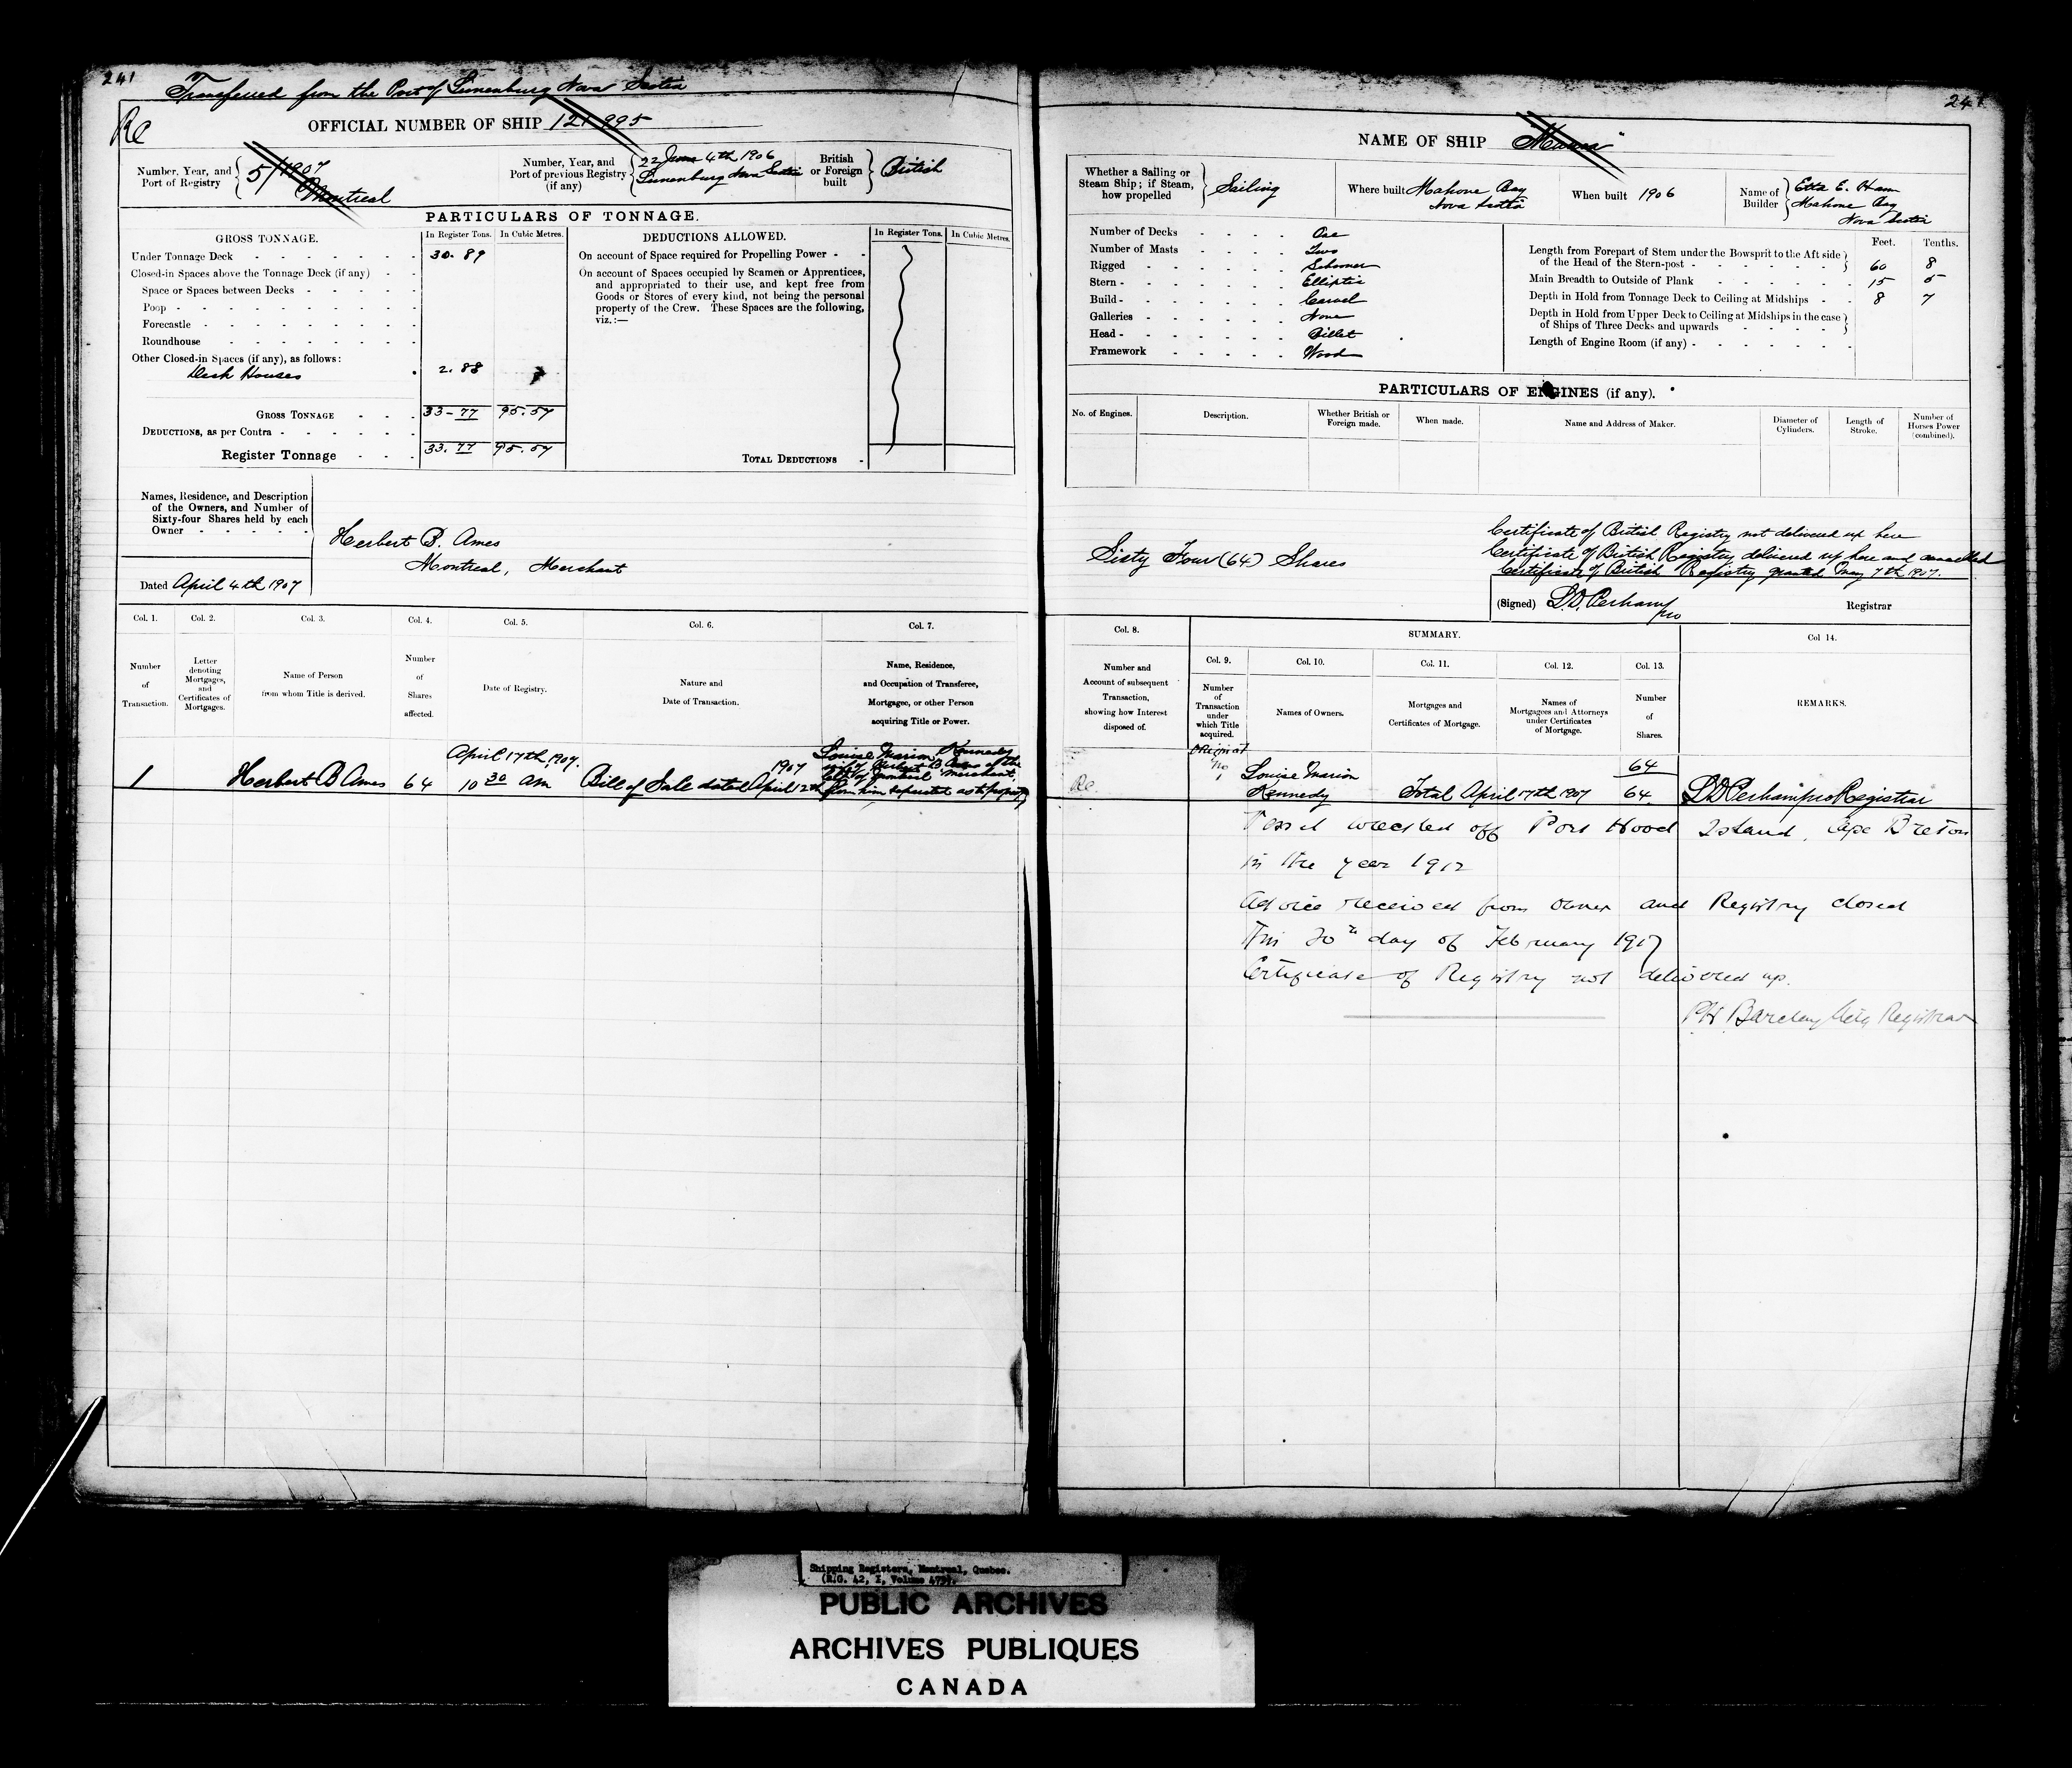 241
Transferred from the Port of Lunenburg Nova Scotia
Re
OFFICIAL NUMBER OF SHIP 121-995
Number, Year, and Port of Registry 5/1907 Montreal
Number, Year, and Port of previous Registry (if any) 22 June 4th 1906 Lunenburg Nova Scotia
British or Foreign built British
PARTICULARS OF TONNAGE.
GROSS TONNAGE. In Register Tons. In Cubic Metres.
Under Tonnage Deck 30.89
Closed-in Spaces above the Tonnage Deck (if any)
Space or Spaces between Decks
Poop
Forecastle
Roundhouse
Other Closed-in Spaces (if any), as follows:
Deck Houses 2.88
GROSS TONNAGE 33-77 95.57
DEDUCTIONS, as per Contra
Register Tonnage 33.77 95.57
DEDUCTIONS ALLOWED. In Register Tons. In Cubic Metres.
On account of Space required for Propelling Power
On account of Spaces occupied by Seamen or Apprentices,
and appropriated to their use, and kept free from
Goods or Stores of every kind, not being the personal
property of the Crew. These Spaces are the following,
viz.:—
TOTAL DEDUCTIONS
Names, Residence, and Description
of the Owners, and Number of
Sixty-four Shares held by each
Owner
Herbert B. Ames
Montreal, Merchant
Dated April 4th 1907
Col. 1. Col. 2. Col. 3. Col. 4. Col. 5. Col. 6. Col. 7.
Number of Transaction.
Letter denoting Mortgages, and Certificates of Mortgages.
Name of Person from whom Title is derived.
Number of Shares affected.
Date of Registry.
Nature and Date of Transaction.
Name, Residence, and Occupation of Transferee, Mortgagee, or other Person acquiring Title or Power.
1
Herbert B Ames
64
April 17th, 1907.
10 30 am
Bill of Sale dated April 12th 1907
Louise Marion Kennedy
wife of Herbert B Ames of the
City of Montreal Merchant,
from him separated as to property
241
NAME OF SHIP
Whether a Sailing or Steam Ship; if Steam, how propelled Sailing
Where built Mahone Bay Nova Scotia
When built 1906
Name of Builder Etta E. Ham Mahone Bay Nova Scotia
Number of Decks One
Number of Masts Two
Rigged Schooner
Stern Elliptic
Build Carvel
Galleries None
Head Billet
Framework Wood
Feet. Tenths.
Length from Forepart of Stem under the Bowsprit to the Aft side of the Head of the Stern-post 60 8
Main Breadth to Outside of Plank 15 5
Depth in Hold from Tonnage Deck to Ceiling at Midships 8 7
Depth in Hold from Upper Deck to Ceiling at Midships in the case of Ships of Three Decks and upwards
Length of Engine Room (if any)
PARTICULARS OF ENGINES (if any).
No. of Engines. Description. Whether British or Foreign made. When made. Name and Address of Maker. Diameter of Cylinders. Length of Stroke. Number of Horses Power (combined).
Sixty Four (64) Shares
Certificate of British Registry not delivered up here
Certificate of British Registry delivered up here and cancelled
Certificate of British Registry granted May 7th 1907.
(Signed) L.D. Perham pro Registrar
Col. 8. SUMMARY. Col 14.
Col. 9. Col. 10. Col. 11. Col. 12. Col. 13.
Number and Account of subsequent Transaction, showing how Interest disposed of.
Number of Transaction under which Title acquired.
Names of Owners.
Mortgages and Certificates of Mortgage.
Names of Mortgagees and Attorneys under Certificates of Mortgage.
Number of Shares.
REMARKS.
Re.
Original
No
1
Louise Marion
Kennedy
Total April 17th 1907
64
64
L D Perham pro Registrar
Vessel wrecked off Port Hood Island, Cape Breton
in the year 1912
Advice received from owner and Registry closed
this 20th day of February 1917
Certificate of Registry not delivered up.
PH Barclay Actg Registrar
Shipping Registers, Montreal, Quebec.
PUBLIC ARCHIVES
ARCHIVES PUBLIQUES
CANADA